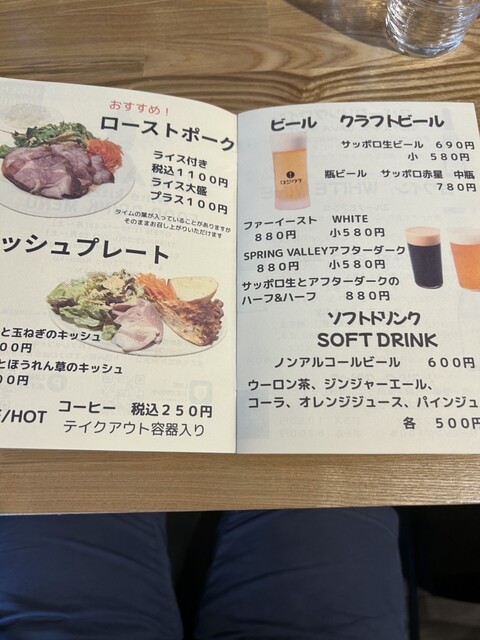 おすすめ！
ローストポーク
ライス付き
税込１１００円
ライス大盛
プラス１００円
タイムの葉が入っていることがありますが
そのままお召し上がりいただけます
ッシュプレート
と玉ねぎのキッシュ
００円
とほうれん草のキッシュ
００円
/HOT コーヒー 税込２５０円
テイクアウト容器入り
ビール クラフトビール
サッポロ生ビール ６９０円
小 ５８０円
瓶ビール サッポロ赤星 中瓶
７８０円
ファーイースト WHITE
８８０円 小５８０円
SPRING VALLEYアフターダーク
８８０円 小５８０円
サッポロ生とアフターダークの
ハーフ&ハーフ ８８０円
ソフトドリンク
SOFT DRINK
ノンアルコールビール ６００円
ウーロン茶、ジンジャーエール、
コーラ、オレンジジュース、パインジュ
各 ５００円